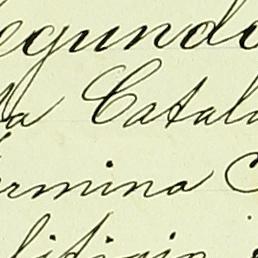 egundo
la Catal
ermina C